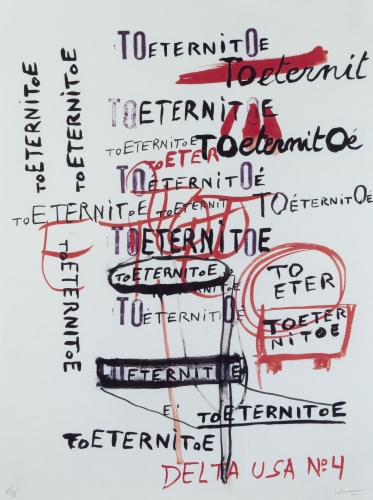 TOETERNITOE
TOeternit
TOETERNITOE
TOETERNITOE
TOETERNITOE
TOeternitOé
TOETERNITOE
TOETER
TOÉTERNITOÉ
TOETERNITOE
TOETERNIT
TOÉTERNITOÉ
TOETERNITOE
TOETERNITOE
TOETERNITOE
TO
ETER
TOÉTERNITOÉ
TOETER
NITOE
TOETERNITOE
TOETERNITOE
TOETERNITOE
DELTA USA Nº4